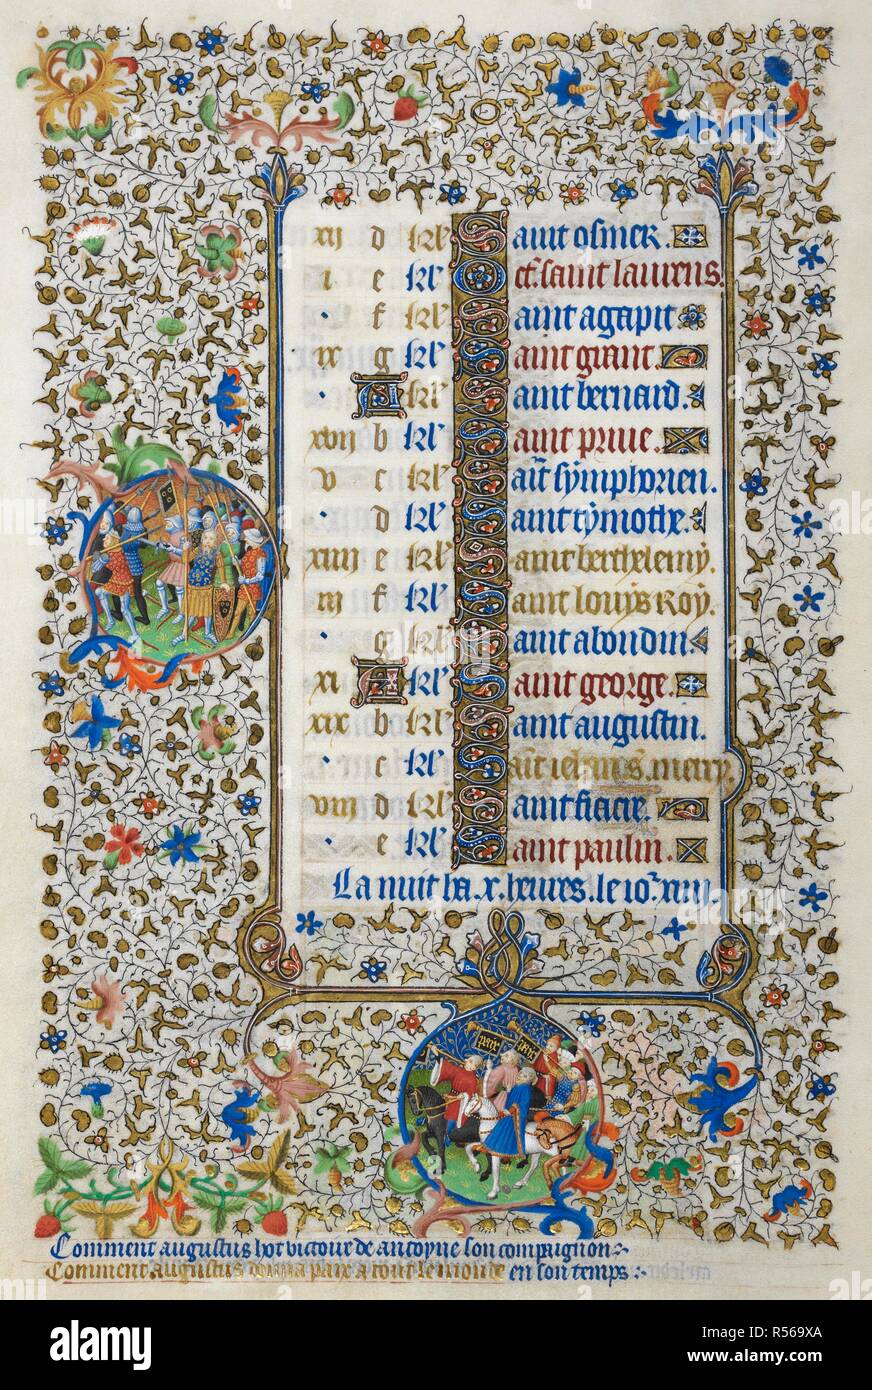 xij d kl' Saint osmer.
i e kl' Oct. saint laurens.
f kl' Saint agapit
ix g kl' Saint
A kl' Saint bernard.
xvij b kl' Saint prive.
v c kl' Saint symphorien.
d kl' Saint tymothe.
xiiij e kl' Saint berthelemy.
iij f kl' Saint louys Roy.
g kl' Saint abondin.
xi A kl' Saint george.
xix b kl' Saint augustin.
c kl' Saint iehan s. merry.
viij d kl' Saint fiacre.
e kl' Saint paulin.
La nuit ha .x. heures. le ior xiiij.
paix paix
Comment augustus hot victoire de antoyne son compaignon:
Comment augustus donna paix a tout le monde en son temps:
alamy
Image ID: R569XA
www.alamy.com